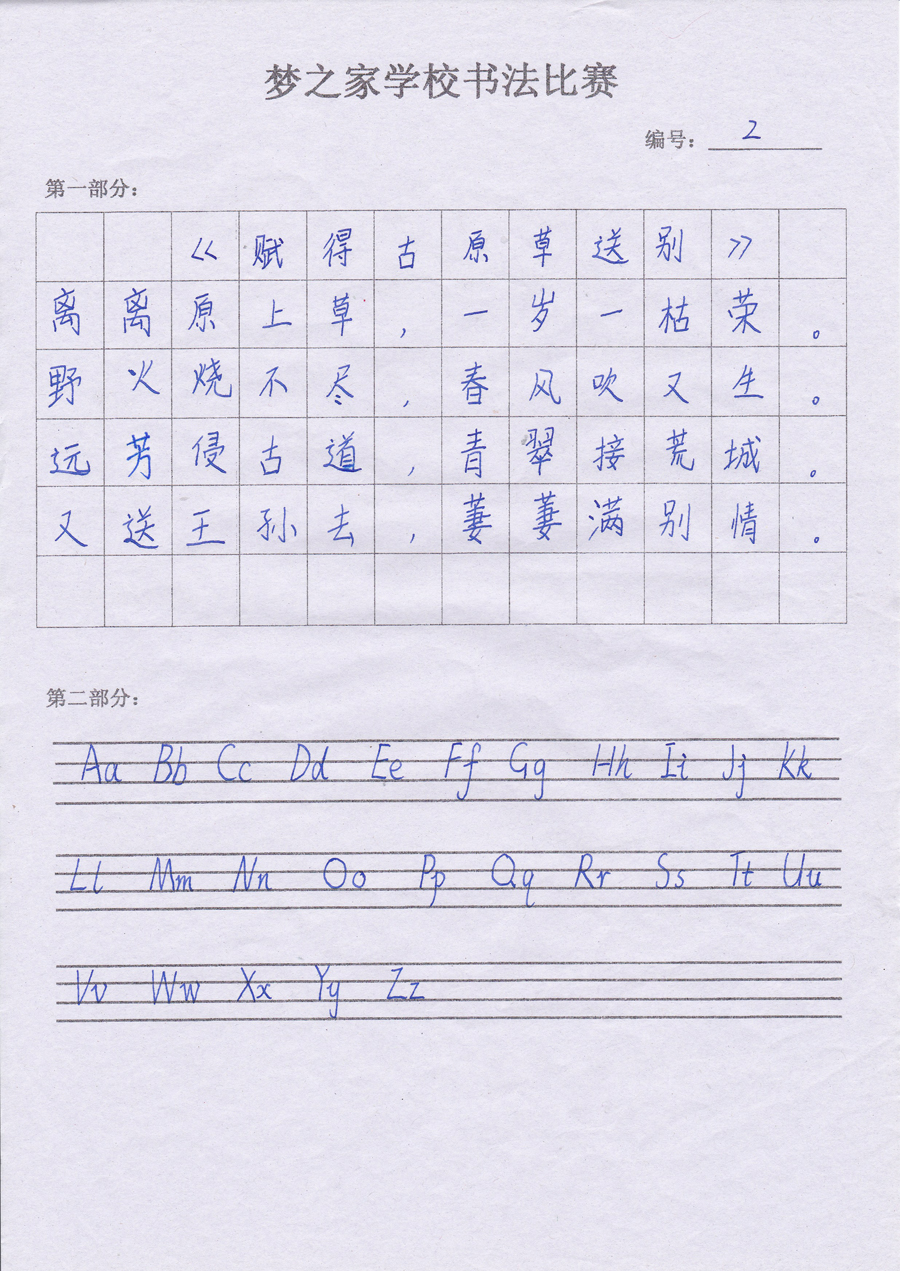 梦之家学校书法比赛
编号： 2
第一部分：
《赋得古原草送别》
离离原上草，一岁一枯荣。
野火烧不尽，春风吹又生。
远芳侵古道，青翠接荒城。
又送王孙去，萋萋满别情。
第二部分：
Aa Bb Cc Dd Ee Ff Gg Hh Ii Jj Kk
Ll Mm Nn Oo Pp Qq Rr Ss Tt Uu
Vv Ww Xx Yy Zz